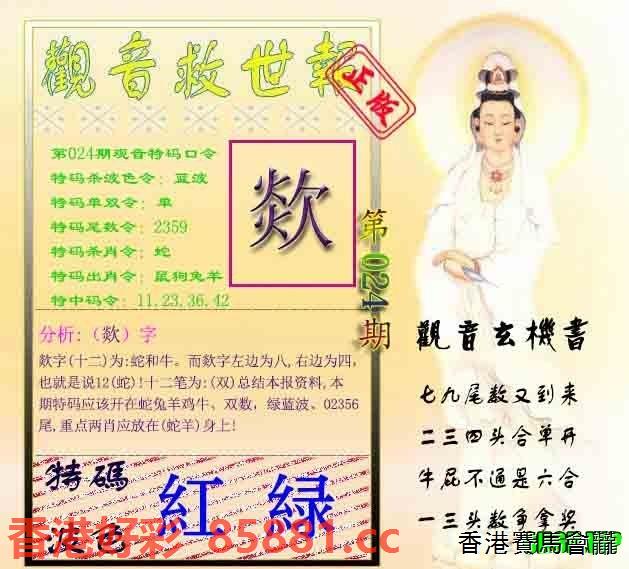 觀音救世報
正版
第024期观音特码口令
特码杀波色令：蓝波
特码单双令：单
特码尾数令：2359
特码杀肖令：蛇
特码出肖令：鼠狗兔羊
特中码令：11.23.36.42
欻
第024期
分析:（欻）字
欻字(十二)为:蛇和牛。而欻字左边为八,右边为四,
也就是说12(蛇)!十二笔为:(双)总结本报资料,本
期特码应该开在蛇兔羊鸡牛、双数，绿蓝波、02356
尾,重点两肖应放在(蛇羊)身上!
觀音玄機書
七九尾数又到来
二三四头合单开
牛屁不通是六合
一三头数争拿奖
特碼
波色
紅 緑
香港好彩 85881.cc
香港賽馬會